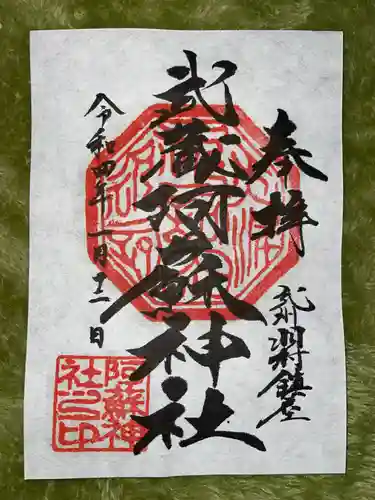 奉拝
武州羽村鎮座
武蔵阿蘇神社
令和四年一月十二日
阿蘇神社之印